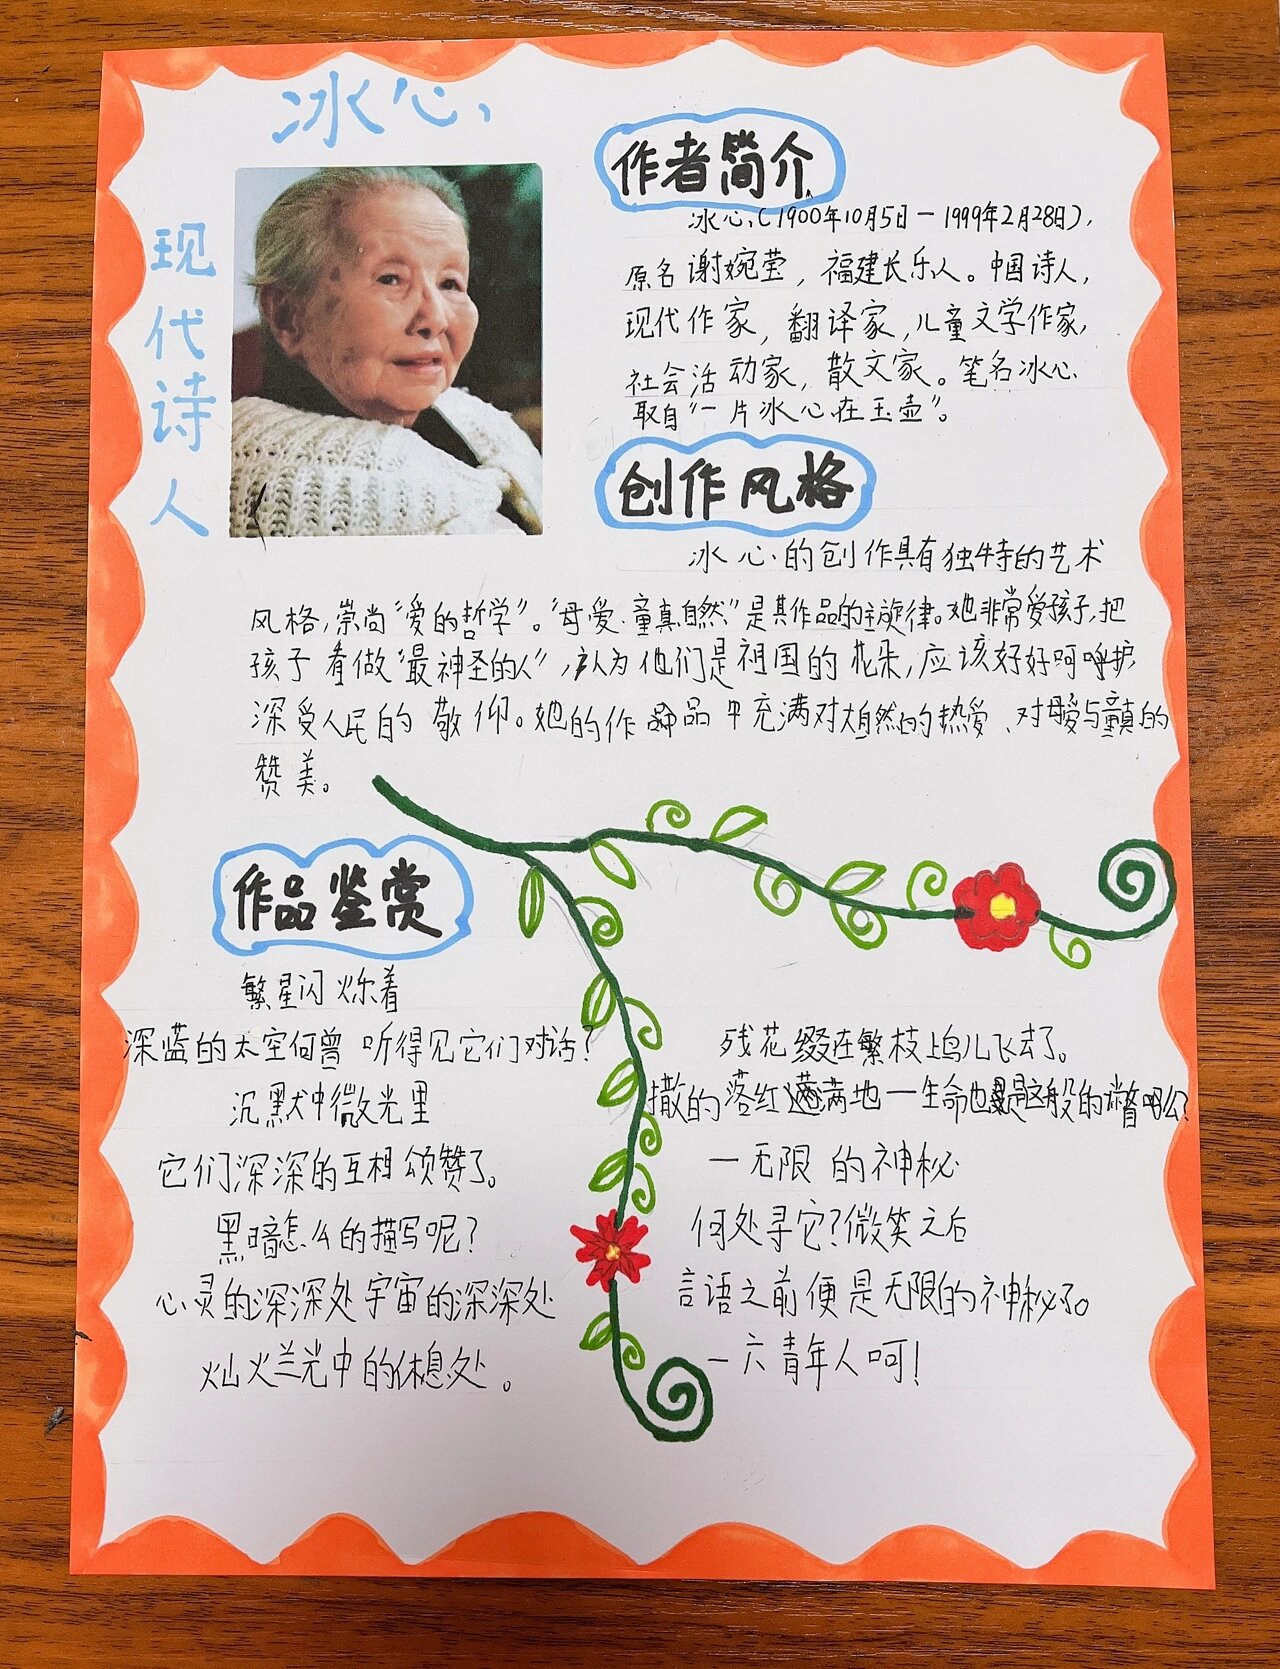 冰心
现代诗人
作者简介
冰心(1900年10月5日-1999年2月28日),
原名谢婉莹,福建长乐人。中国诗人,
现代作家,翻译家,儿童文学作家,
社会活动家,散文家。笔名冰心
取自“一片冰心在玉壶”。
创作风格
冰心的创作具有独特的艺术
风格,崇尚“爱的哲学”。“母爱、童真、自然”是其作品的主旋律。她非常爱孩子,把
孩子看做“最神圣的人”,认为他们是祖国的花朵,应该好好呵护,
深受人民的敬仰。她的作品中充满对大自然的热爱、对母爱与童真的
赞美。
作品鉴赏
繁星闪烁着
深蓝的太空何曾听得见它们对话?
沉默中微光里
它们深深的互相颂赞了。
黑暗怎么的描写呢?
心灵的深深处宇宙的深深处
灿烂光中的休息处。
残花缀在繁枝上鸟儿飞去了。
撒的落红满地一生命也是这般的一瞥吗?
一无限的神秘
何处寻它?微笑之后
言语之前便是无限的神秘了。
一六青年人呵!